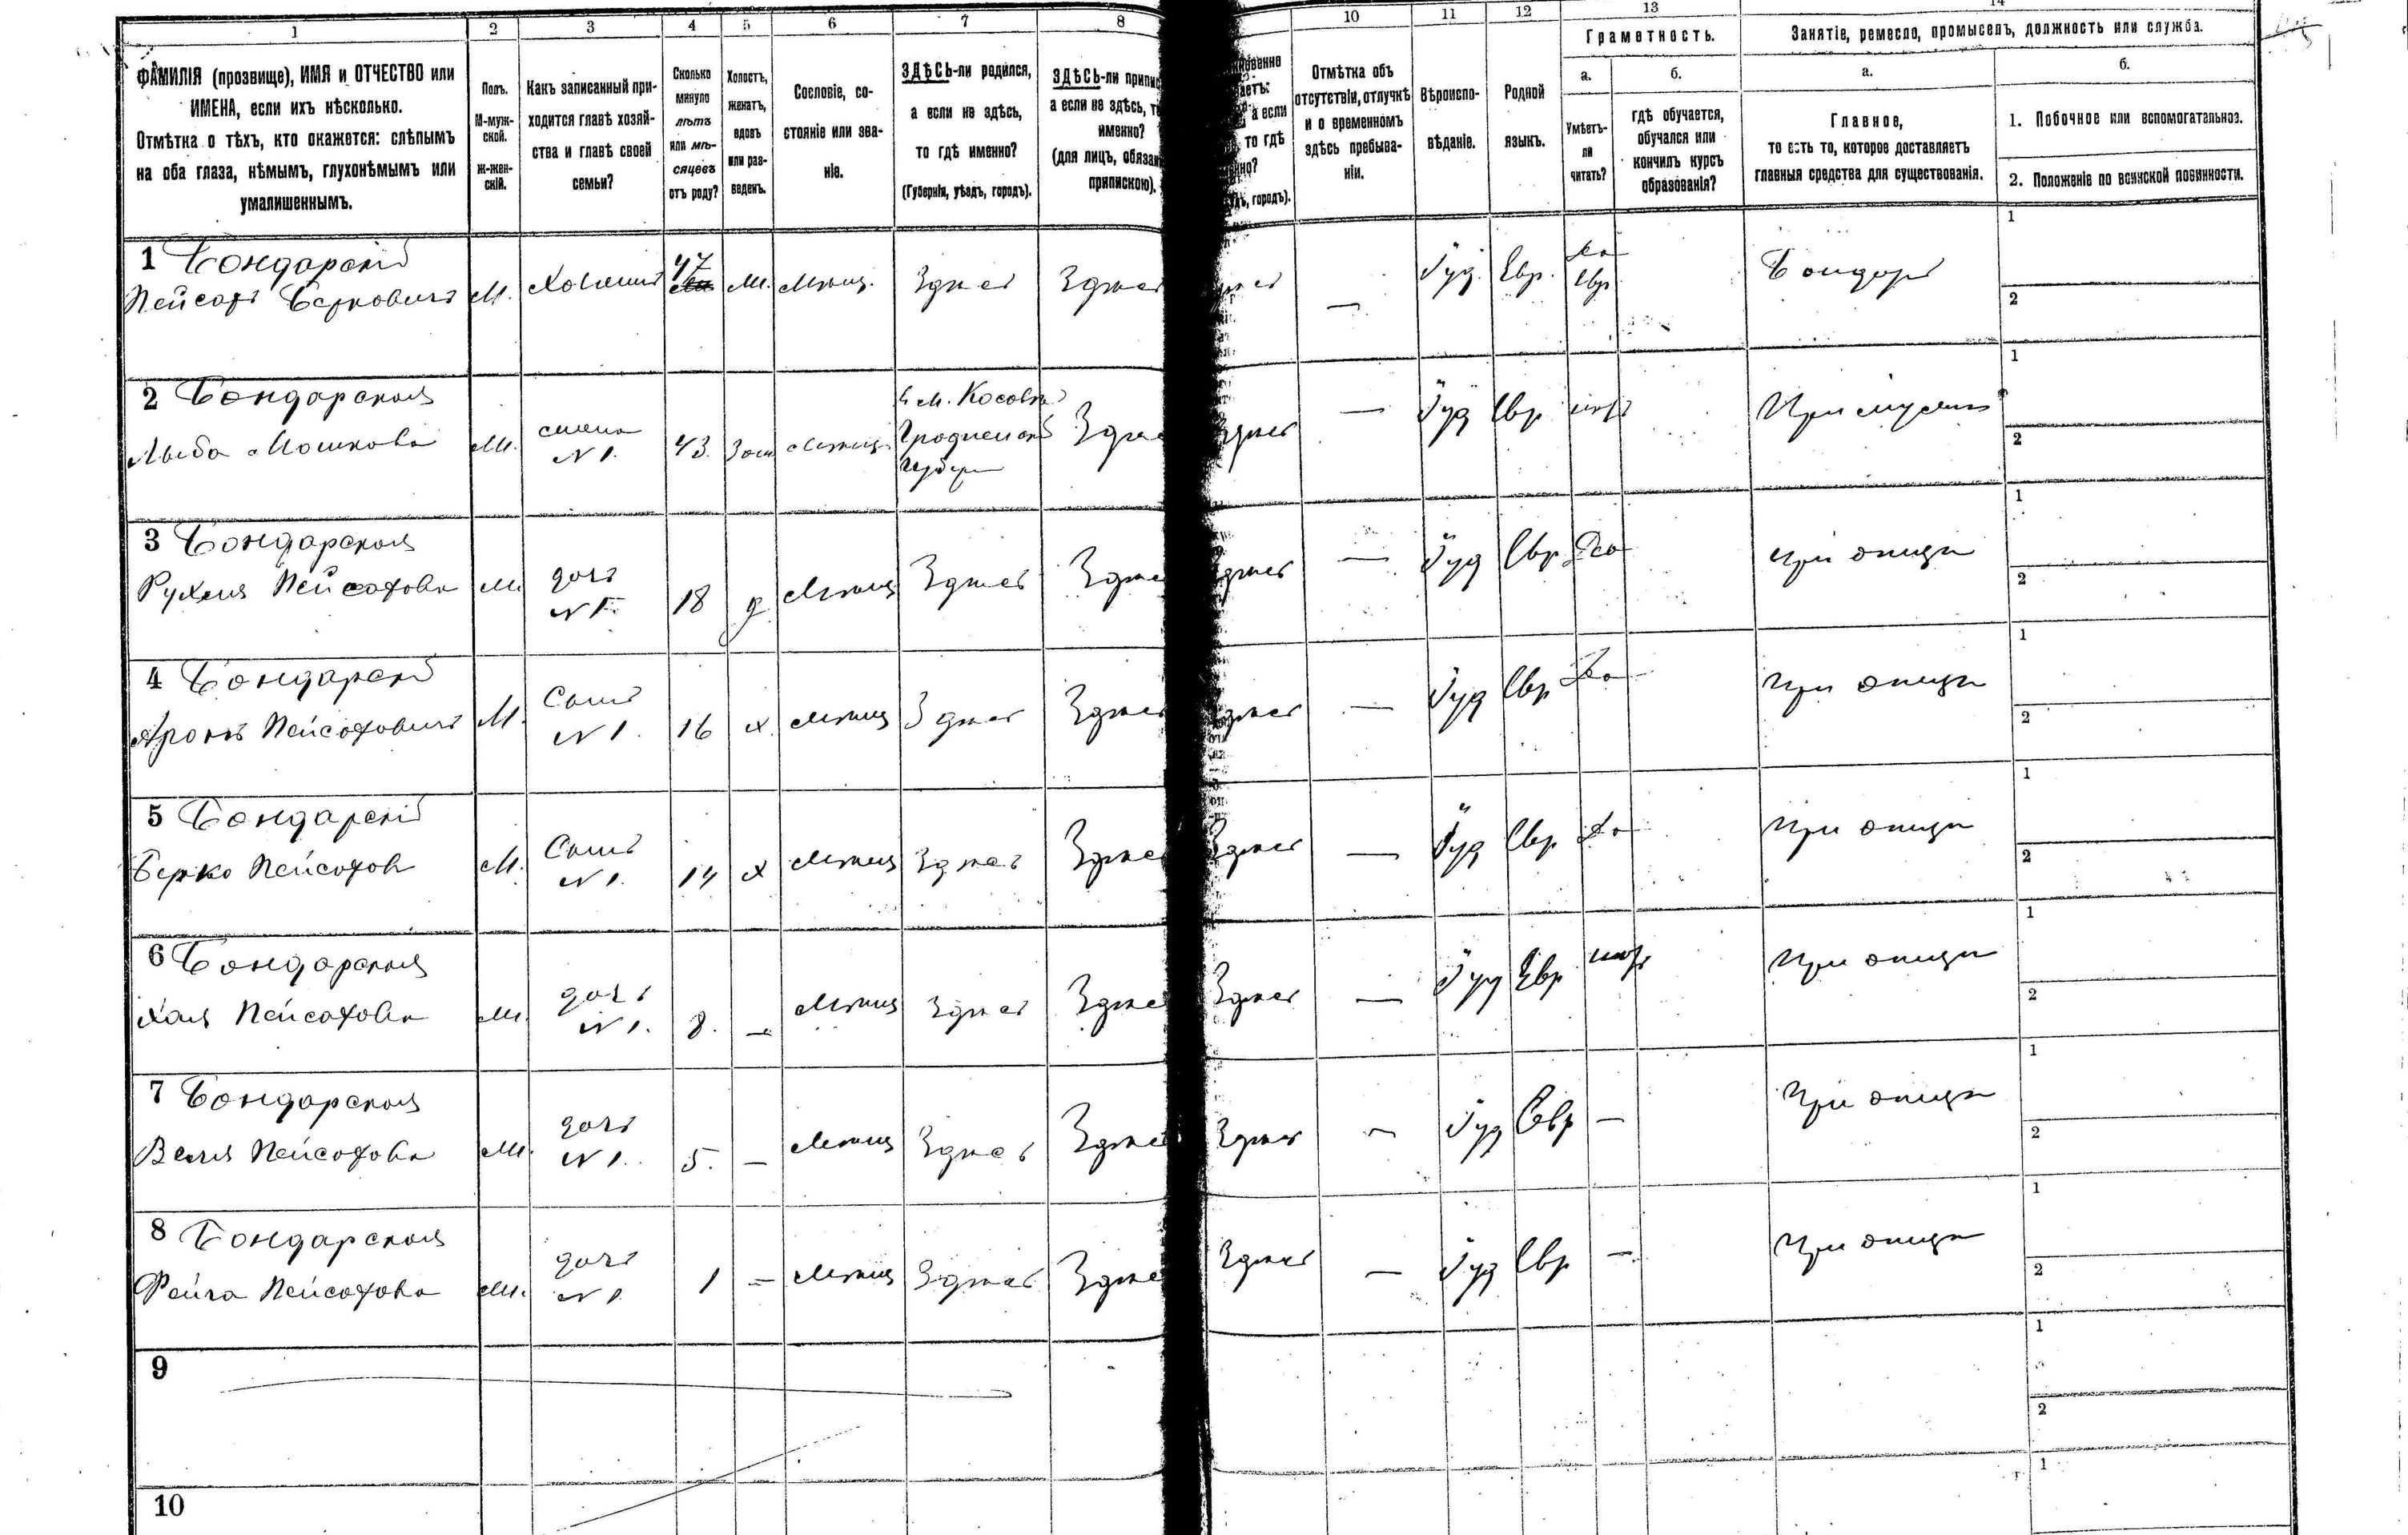 1 2 3 4 5 6 7 8 10 11 12 13 14
ФАМИЛІЯ (прозвище), ИМЯ и ОТЧЕСТВО или
ИМЕНА, если ихъ нѣсколько.
Отмѣтка о тѣхъ, кто окажется: слѣпымъ
на оба глаза, нѣмымъ, глухонѣмымъ или
умалишеннымъ.
Полъ.
М-муж-
ской.
Ж-жен-
скій.
Какъ записанный при-
ходится главѣ хозяй-
ства и главѣ своей
семьи?
Сколько
минуло
лѣтъ
или мѣ-
сяцевъ
отъ роду?
Холостъ,
женатъ,
вдовъ
или раз-
веденъ.
Сословіе, со-
стояніе или зва-
ніе.
ЗДѢСЬ-ли родился,
а если не здѣсь,
то гдѣ именно?
(Губернія, уѣздъ, городъ).
ЗДѢСЬ-ли припис
а если не здѣсь, т
именно?
(для лицъ, обязан
припискою).
а если
то гдѣ
городъ).
Отмѣтка объ
отсутствіи, отлучкѣ
и о временномъ
здѣсь пребыва-
ніи.
Вѣроиспо-
вѣданіе.
Родной
языкъ.
Грамотность.
а.
Умѣетъ-
ли
читать?
б.
гдѣ обучается,
обучался или
кончилъ курсъ
образованія?
Занятіе, ремесло, промыселъ, должность или служба.
а.
Главное,
то есть то, которое доставляетъ
главныя средства для существованія.
б.
1. Побочное или вспомогательное.
2. Положеніе по воинской повинности.
1 Бондарскій
Пейсахъ Берковичъ М. Хозяинъ 47 М. Мѣщ. Здѣсь Здѣсь — Іуд. Евр. да Евр Бондарь 1 2
2 Бондарская
Лыба Мошкова М. жена N 1. 43. Зам Мѣщ. м. Косовѣ Гродненской Губерн Здѣсь Здѣсь — Іуд Евр нѣтъ При мужѣ 1 2
3 Бондарская
Рухля Пейсахова М дочь N 1. 18 д Мѣщ Здѣсь Здѣсь Здѣсь — Іуд Евр Да при отцѣ 1 2
4 Бондарскій
Аронъ Пейсаховичъ М. Сынъ N 1. 16 х. Мѣщ Здѣсь Здѣсь Здѣсь — Іуд Евр Да при отцѣ 1 2
5 Бондарскій
Берко Пейсахов М. Сынъ N 1. 14 х Мѣщ Здѣсь Здѣсь Здѣсь — Іуд Евр да при отцѣ 1 2
6 Бондарская
Хая Пейсахова М. дочь N 1. 8. — Мѣщ Здѣсь Здѣсь Здѣсь — Іуд Евр нѣтъ при отцѣ 1 2
7 Бондарская
Пейсахова М. дочь N 1. 5. — Мѣщ Здѣсь Здѣсь Здѣсь — Іуд Евр — при отцѣ 1 2
8 Бондарская
Фейга Пейсахова М. дочь N 1 1 — Мѣщ Здѣсь Здѣсь Здѣсь — Іуд Евр — при отцѣ 1 2
9 1 2
10 1